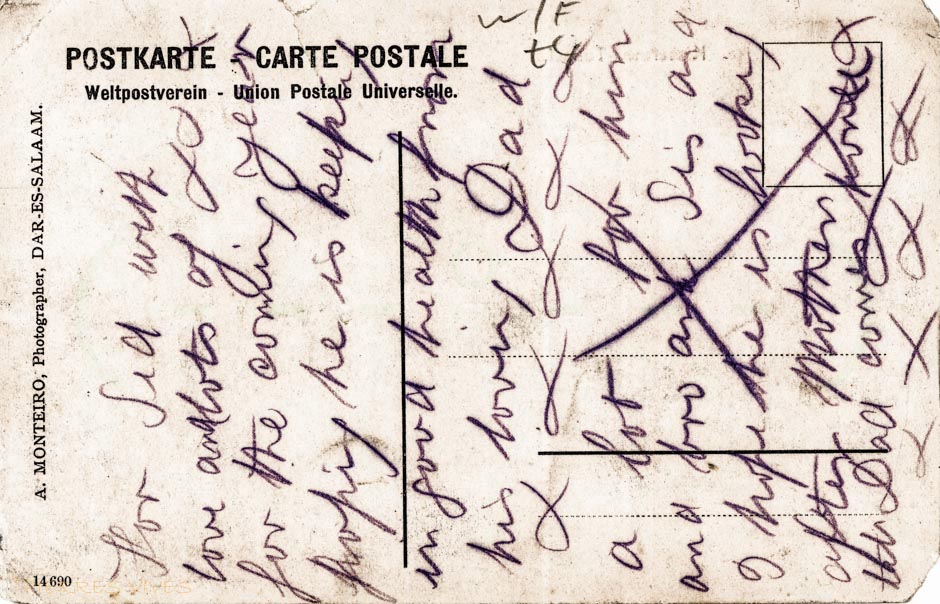 POSTKARTE - CARTE POSTALE
Weltpostverein - Union Postale Universelle.
A. MONTEIRO, Photographer, DAR-ES-SALAAM.
14690
W/F
t4
For Sid with
love and lots of
for the coming year
hoping he is keeping
in good health from
his loving Dad
X X X X
a lot for him
and bro and Sis and
I hope he is looking
after Mother
Dad comes
X X X X X